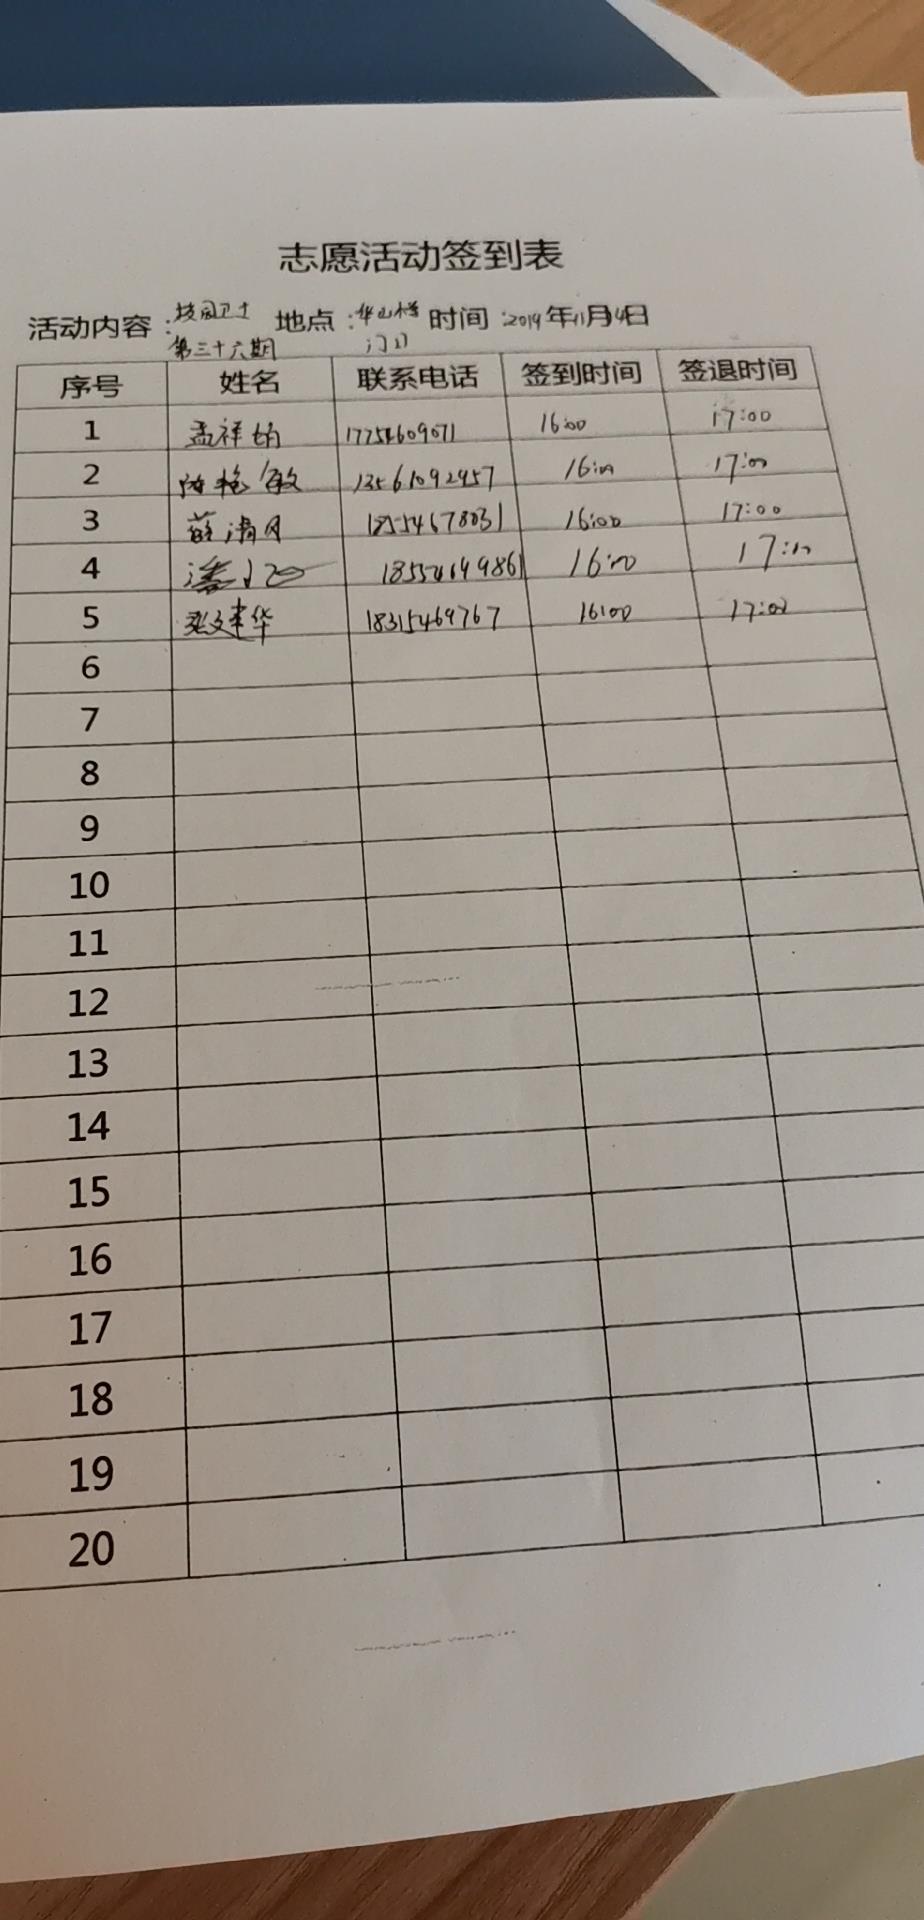 志愿活动签到表
活动内容：校园卫士 地点：华山楼 时间：2019年11月4日
第三十六期 门口
序号 姓名 联系电话 签到时间 签退时间
1 孟祥 17754609071 16:00 17:00
2 陈艳敏 13561092457 16:00 17:00
3 薛清月 18554678031 16:00 17:00
4 潘 18554649861 16:00 17:00
5 张建华 18315469767 16:00 17:00
6
7
8
9
10
11
12
13
14
15
16
17
18
19
20